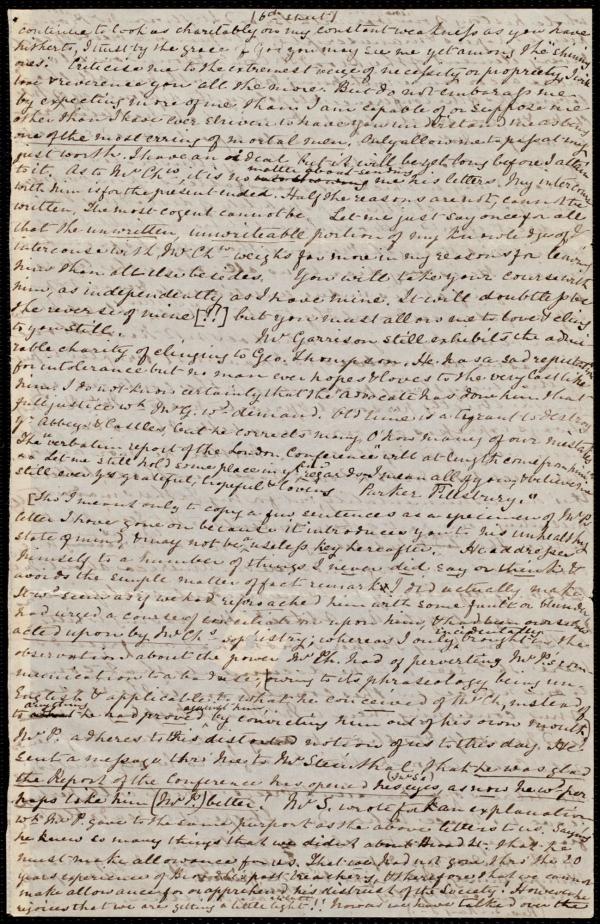 [6th sheet]
continue to look as charitably on my constant weakness as you have
hitherto, I trust by the grace of God you may see me yet among the "shining
ones." Criticise me to the extremest verge of necessity or propriety, I will
love & reverence you all the more. But do not embarrass me
by expecting more of me than I am capable of, or suppose me
other than I have ever striven to have you understand me as being
one of the most erring of mortal men. Only allow me to pass at my
just worth. I have an ideal but it will be long before I attain
to it. As to Mr Chn, it is no matter about sending me his letters. My intercourse
with him is for the present ended. Half the reasons are not, cannot be
written. The most cogent cannot be. Let me just say once for all
that the unwritten, unwriteable portion of my knowledge of &
intercourse with Mr Chn weighs far more in my reasons for leaving
him than all else besides. You will take your course with
him, as independently as I have mine. It will doubtless be
the reverse of mine [!?] but you must allow me to love & cling
to you still. Mr Garrison still exhibits the admi-
rable charity of clinging to Geo. Thompson. He has a sad reputation
for intolerance but no man ever hopes & loves to the very last like
him. I do not know certainly that the Advocate has done him that
full justice wh. Mr G. wd demand. Old time is a tyrant to destroy
ye Abbeys & Castles but he corrects many, O how many of our mistakes
The "verbatim report of the London Conference will at length come from
Let me still hold some place in yr kind regard do, I mean all of you, & believe me
still ever yr grateful, hopeful & loving Parker Pillsbury."
[Tho' I meant only to copy a few sentences as a specimen of Mr P's
letter I have gone on because it introduces you to his unhealthy
state of mind, & may not be a useless key hereafter. He addresses
himself to a number of things I never did say or think &
avoids the simple matter of fact remarks I did actually make
It wd seem as if we had reproached him with some fault or blunder
had urged a course of conciliation upon him, & had been ourselves
acted upon by Mr Chs sophistry; whereas I only incidentally brought in the
observation about the power Mr Ch. had of perverting Mr P's com-
munication to a bad use, owing to its phraseology being un-
English & applicable to what he conceived of Mr Ch, instead of
to anything he had proved against him, by convicting him out of his own mouth)
Mr P. adheres to this distorted notion of us to this day. He
sent a message thro' me to Mr Steinthal "That he was glad
the Report of the Conference has opened his (Mr S's) eyes, as now he wd per-
haps take him (Mr P.) better." Mr S. wrote for an explanation
wh Mr P. gave to the same purport as the above letters to us. Saying
he knew so many things that we didn't about Broad St. that he
must make allowance for us. That we had not gone thro' the 20
years experience of Broad St. treachery, & therefore that we cannot
make allowance for or apprehend his distrust of the Society. However he
rejoices that we are getting a little light!! Now as we have talked over the